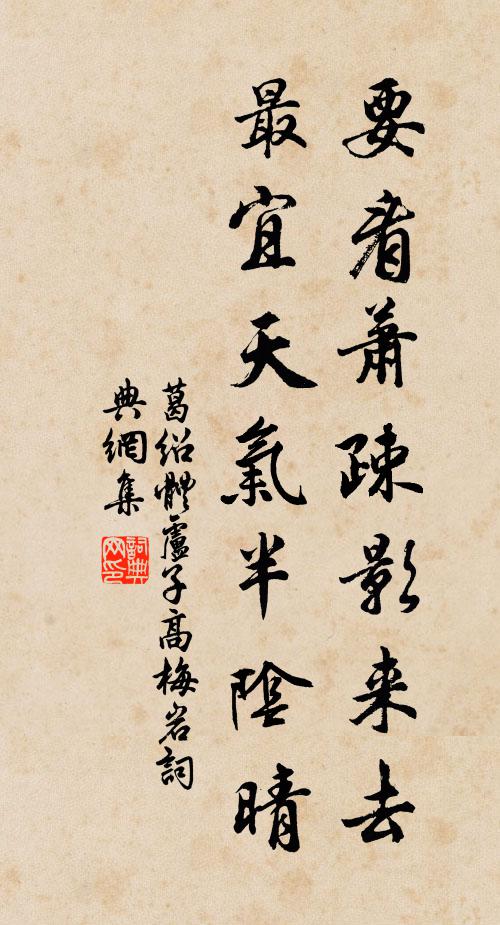 要看蕭疎影来去
最宜天氣半陰晴
葛紹體盧子高梅岩詞
典網集
詞典
网印